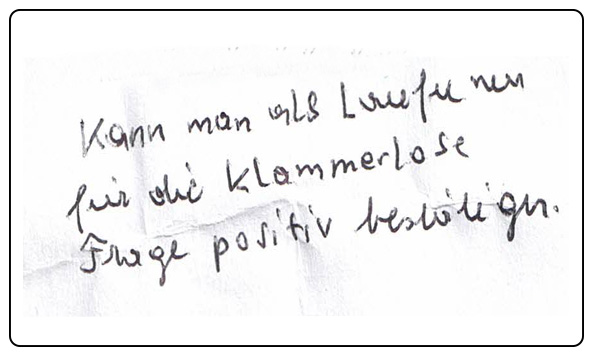 Kann man als Läufer nun
für die Klammerlose
Frage positiv bestätigen.